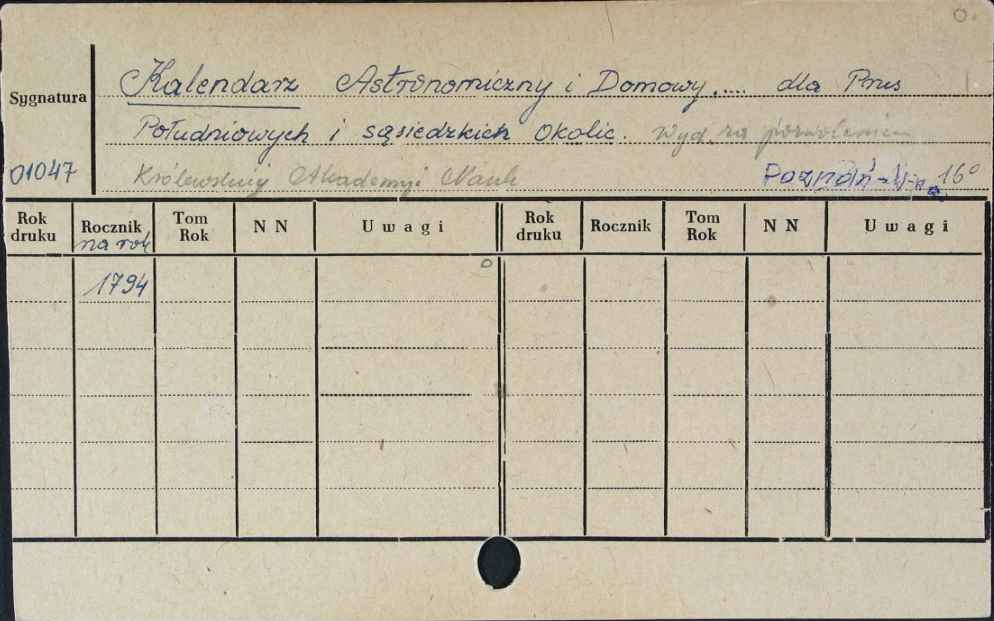 O.
Sygnatura
01047
Kalendarz Astronomiczny i Domowy.... dla Prus
Południowych i sąsiedzkich okolic. Wyd. za pozwoleniem
Królewskiej Akademyi Nauk Poznań 16°
Rok druku Rocznik na rok Tom Rok NN Uwagi Rok druku Rocznik Tom Rok NN Uwagi
1794